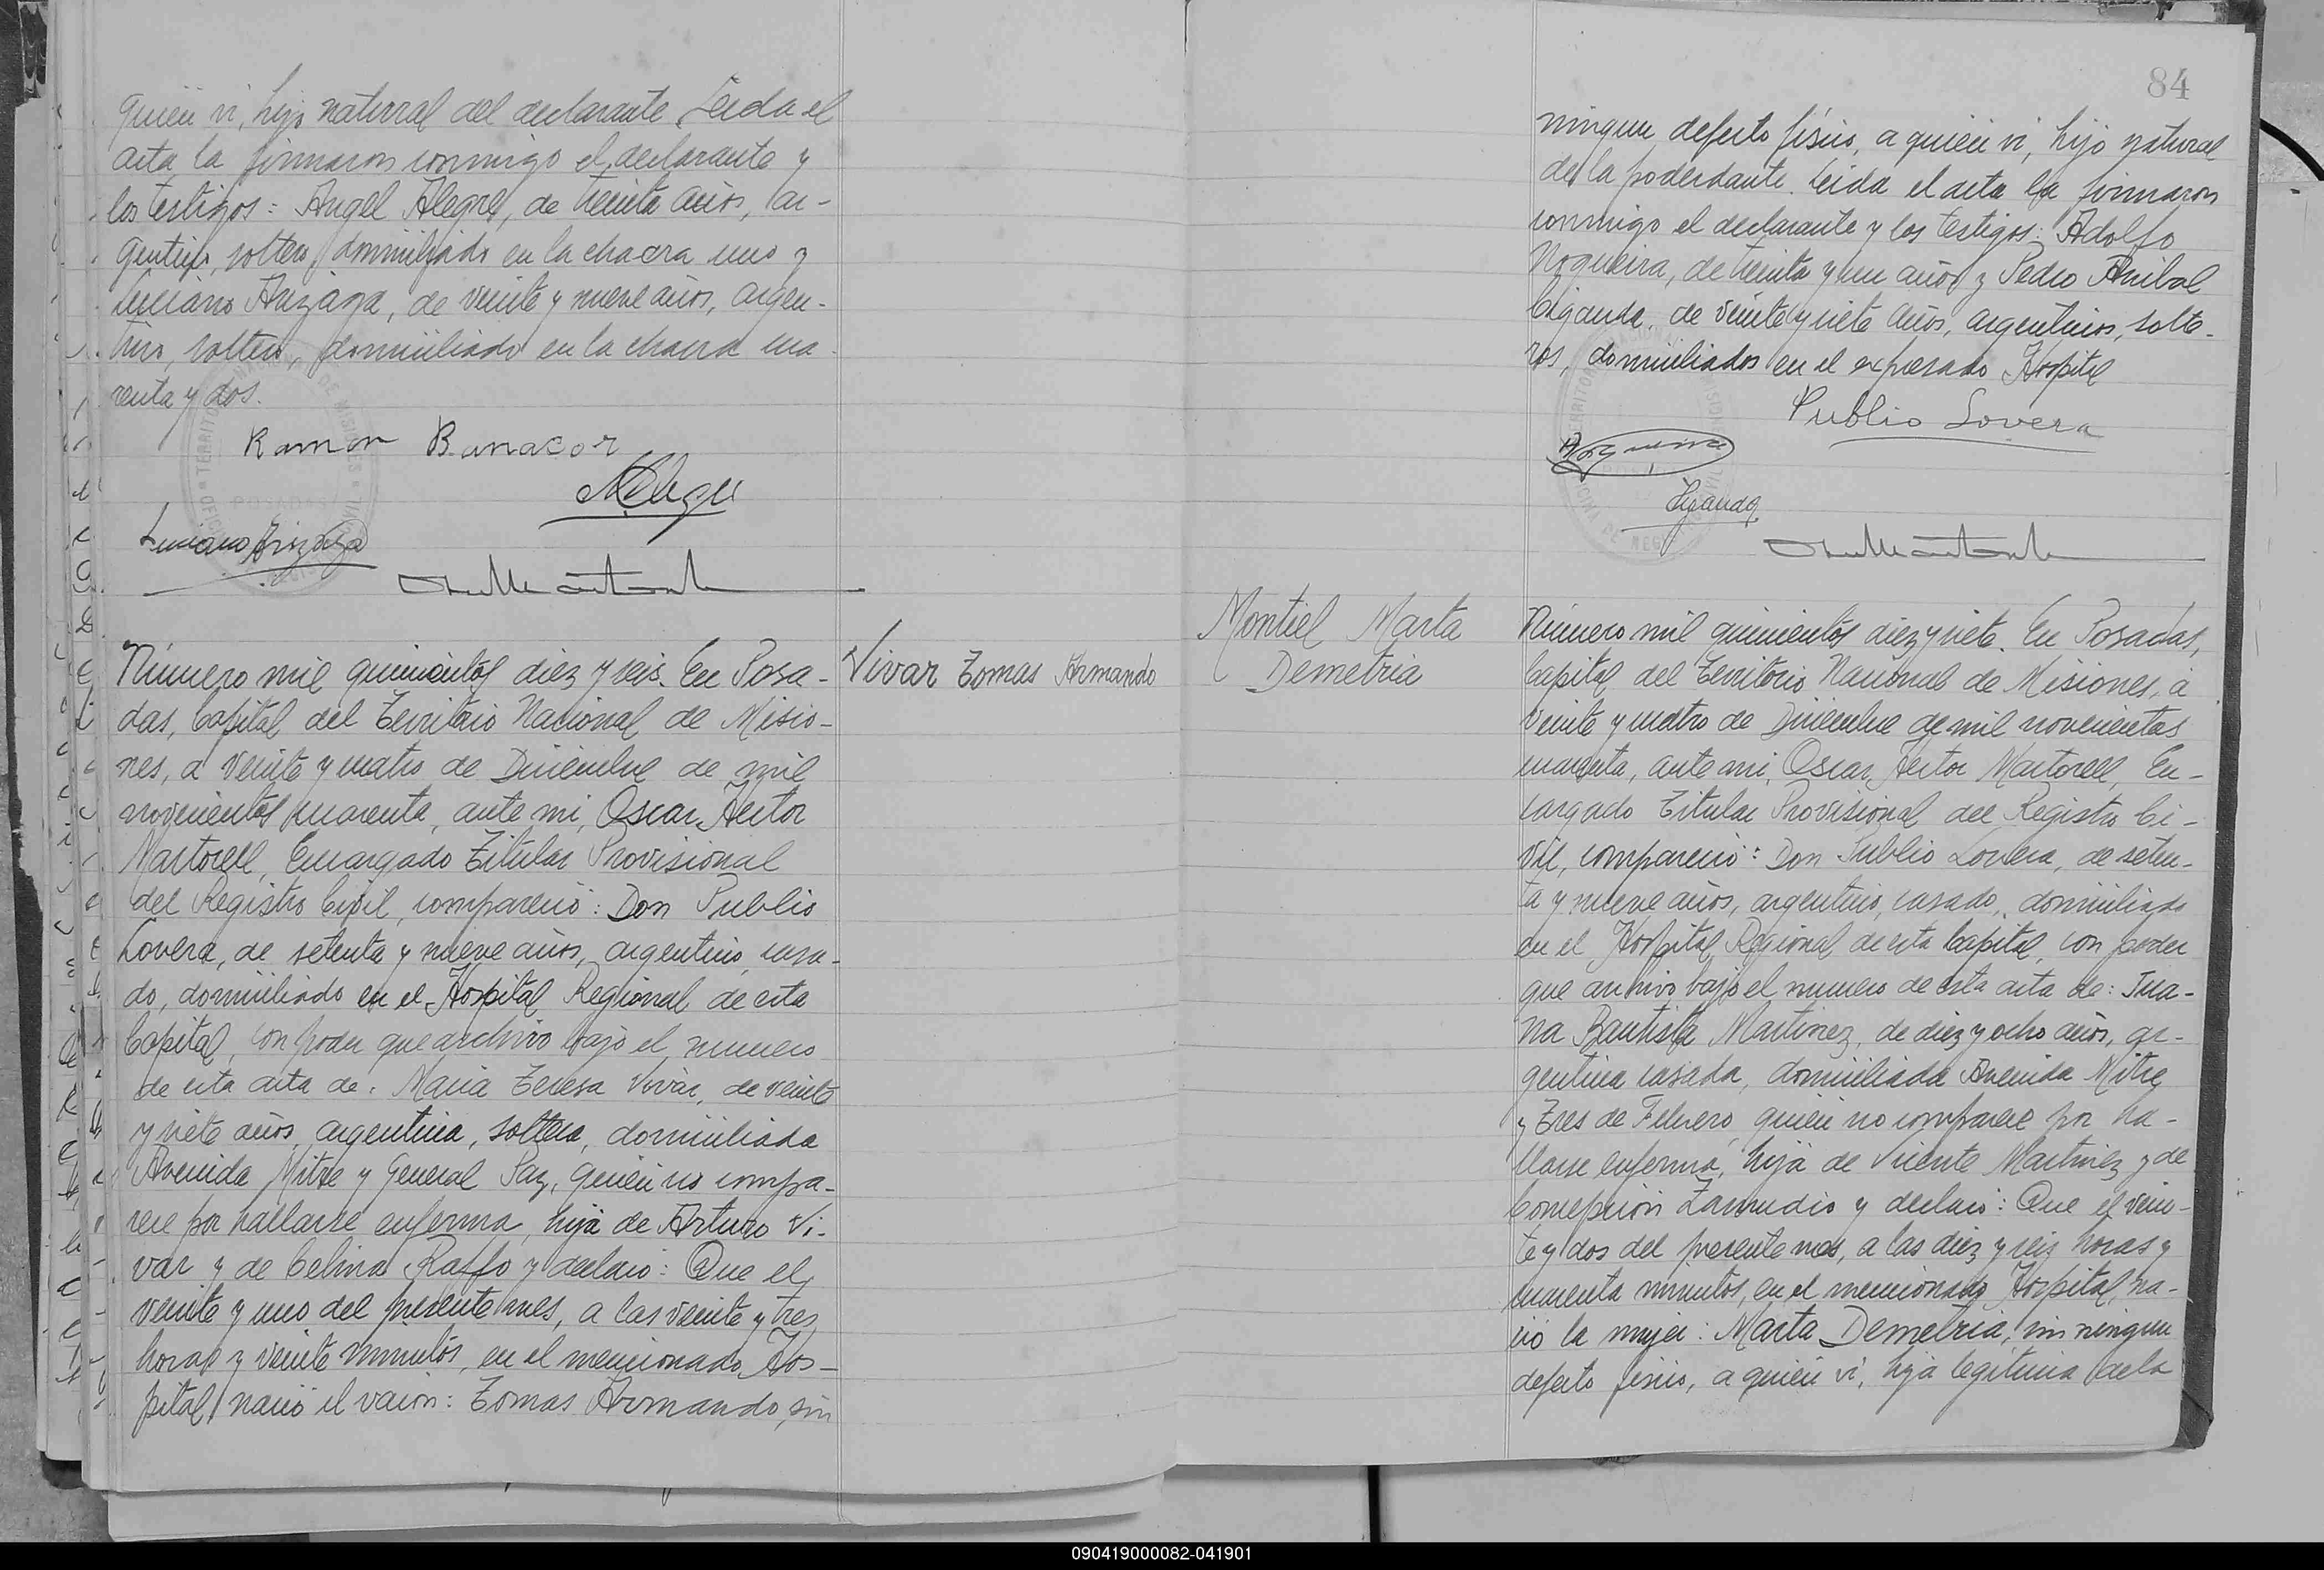 quien vi, hijo natural del declarante. Leida el
acta la firmaron conmigo el declarante y
los testigos: Angel Alegre, de treinta años, ar-
gentino, soltero, domiciliado en la chacra uno y
Luciano Arizaga, de veinte y nueve años, argen-
tino, soltero, domiciliado en la chacra cua
renta y dos.
Ramon
Luciano Arizaga
Número mil quinientos diez y seis. En Posa-
das, Capital del Territorio Nacional de Misio-
nes, a veinte y cuatro de Diciembre de mil
novecientos cuarenta, ante mi, Oscar Hector
Martorell, Encargado Titular Provisional
del Registro Civil, compareció: Don Publio
Lovera, de setenta y nueve años, argentino, casa-
do, domiciliado en el Hospital Regional de esta
Capital, con poder que archivo bajo el numero
de esta acta de: Maria Teresa Vivar, de veinte
y siete años, argentina, soltera, domiciliada
Avenida Mitre y General Paz, quien no compa-
rece por hallarse enferma, hija de Arturo Vi-
var y de Celina Raffo y declaró: Que el
veinte y uno del presente mes, a las veinte y tres
horas y veinte minutos, en el mencionado Hos-
pital, nació el varón: Tomas Armando, sin
Vivar Tomas Armando
84
ningun defecto físico, a quien vi, hijo natural
de la poderdante. Leida el acta la firmaron
conmigo el declarante y los testigos: Adolfo
Nogueira, de treinta y un años y Pedro Anibal
Ciganda, de veinte y siete años, argentinos, solte-
ros, domiciliados en el expresado Hospital
Publio Lovera
Ciganda
Montiel Marta
Demetria
Número mil quinientos diez y siete. En Posadas,
Capital del Territorio Nacional de Misiones, a
veinte y cuatro de Diciembre de mil novecientos
cuarenta, ante mi, Oscar Hector Martorell, En-
cargado Titular Provisional del Registro Ci-
vil, compareció: Don Publio Lovera, de seten-
ta y nueve años, argentino, casado, domiciliado
en el Hospital Regional de esta Capital, con poder
que archivo bajo el numero de esta acta de: Jua-
na Bautista Martinez, de diez y ocho años, ar-
gentina casada, domiciliada Avenida Mitre
y Tres de Febrero, quien no comparece por ha-
llarse enferma, hija de Vicente Martinez y de
Concepción Zamudio y declaró: Que el vein-
te y dos del presente mes, a las diez y seis horas y
cuarenta minutos, en el mencionado Hospital, na-
ció la mujer: Marta Demetria, sin ningun
defecto físico, a quien vi, hija legitima de la
090419000082-041901